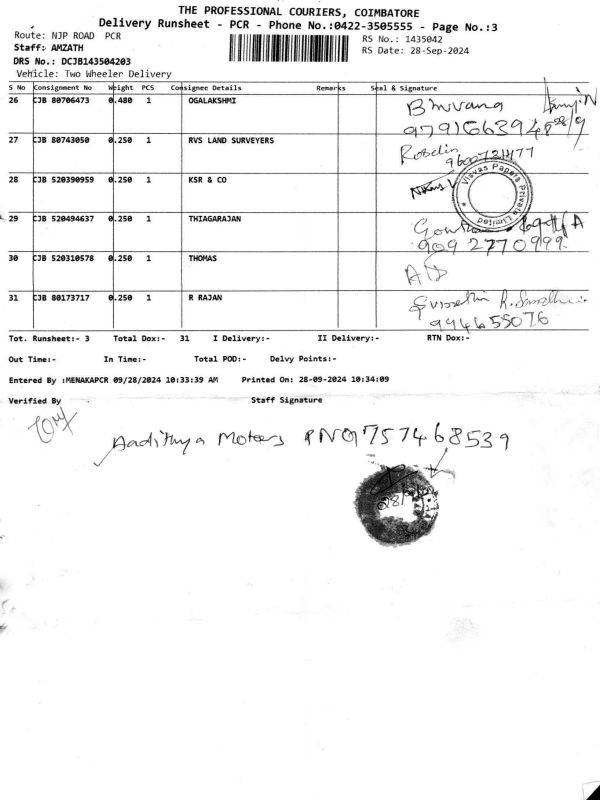 THE PROFESSIONAL COURIERS, COIMBATORE
Delivery Runsheet - PCR - Phone No.:0422-3505555 - Page No.:3
Route: NJP ROAD PCR
RS No.: 1435042
Staff: AMZATH
RS Date: 28-Sep-2024
DRS No.: DCJB143504203
Vehicle: Two Wheeler Delivery
S No Consignment No Weight PCS Consignee Details Remarks Seal & Signature
26 CJB 80706473 0.480 1 OGALAKSHMI Bhuvana
9791663948 28/9
27 CJB 80743050 0.250 1 RVS LAND SURVEYERS Roselin
9600731477
28 CJB 520390959 0.250 1 KSR & CO
Visvas Papers Private Limited
29 CJB 520494637 0.250 1 THIAGARAJAN
909 2770999
30 CJB 520310578 0.250 1 THOMAS
31 CJB 80173717 0.250 1 R RAJAN
994655076
Tot. Runsheet:- 3 Total Dox:- 31 I Delivery:- II Delivery:- RTN Dox:-
Out Time:- In Time:- Total POD:- Delvy Points:-
Entered By :MENAKAPCR 09/28/2024 10:33:39 AM Printed On: 28-09-2024 10:34:09
Verified By Staff Signature
Aadithya Motors PN 9757468539